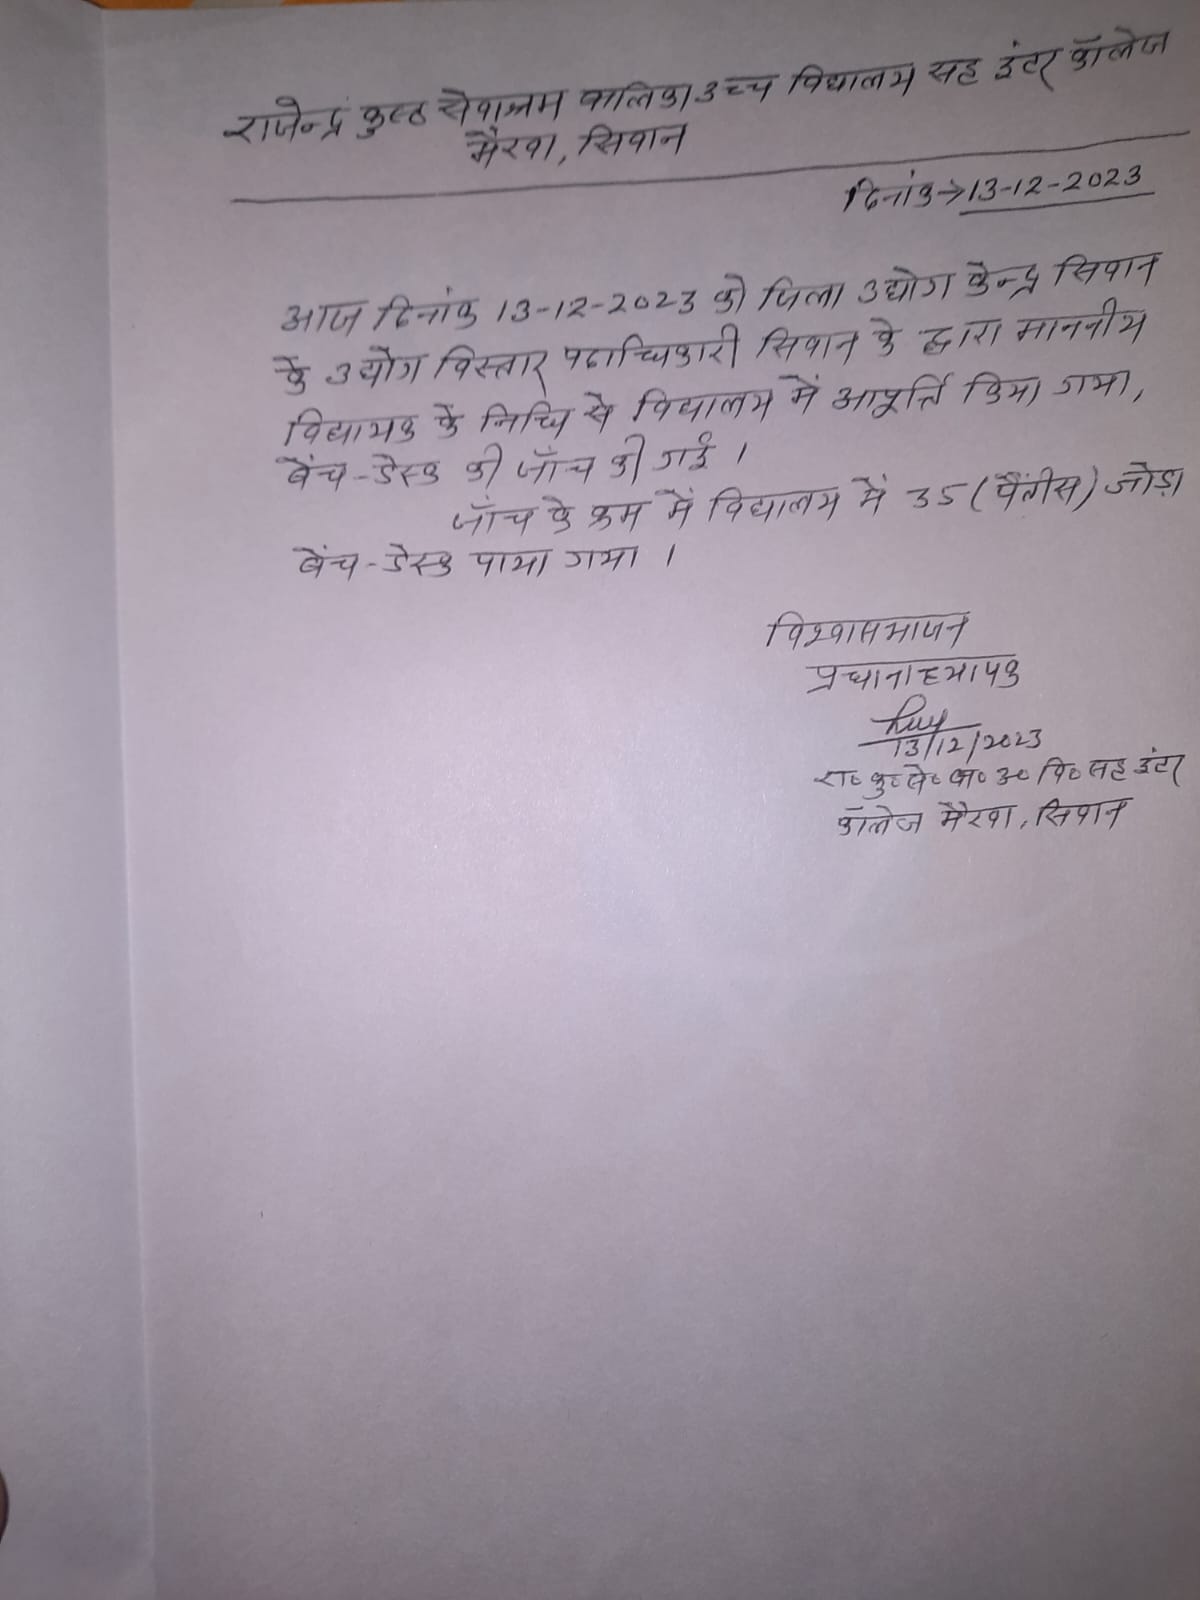 राजेन्द्र कुष्ठ सेवाश्रम बालिका उच्च विद्यालय सह इंटर कॉलेज
मैरवा, सिवान
दिनांक→13-12-2023
आज दिनांक 13-12-2023 को जिला उद्योग केन्द्र सिवान
के उद्योग विस्तार पदाधिकारी सिवान के द्वारा माननीय
विद्यायक के निधि से विद्यालय में आपूर्त्ति किया गया,
बेंच-डेस्क की जाँच की गई ।
जाँच के क्रम में विद्यालय में 35 (पैंतीस) जोड़ा
बेंच-डेस्क पाया गया ।
विश्वासभाजन
प्रधानाध्यापक
13/12/2023
रा० कु० से० बा० उ० वि० सह इंटर
कॉलेज मैरवा, सिवान